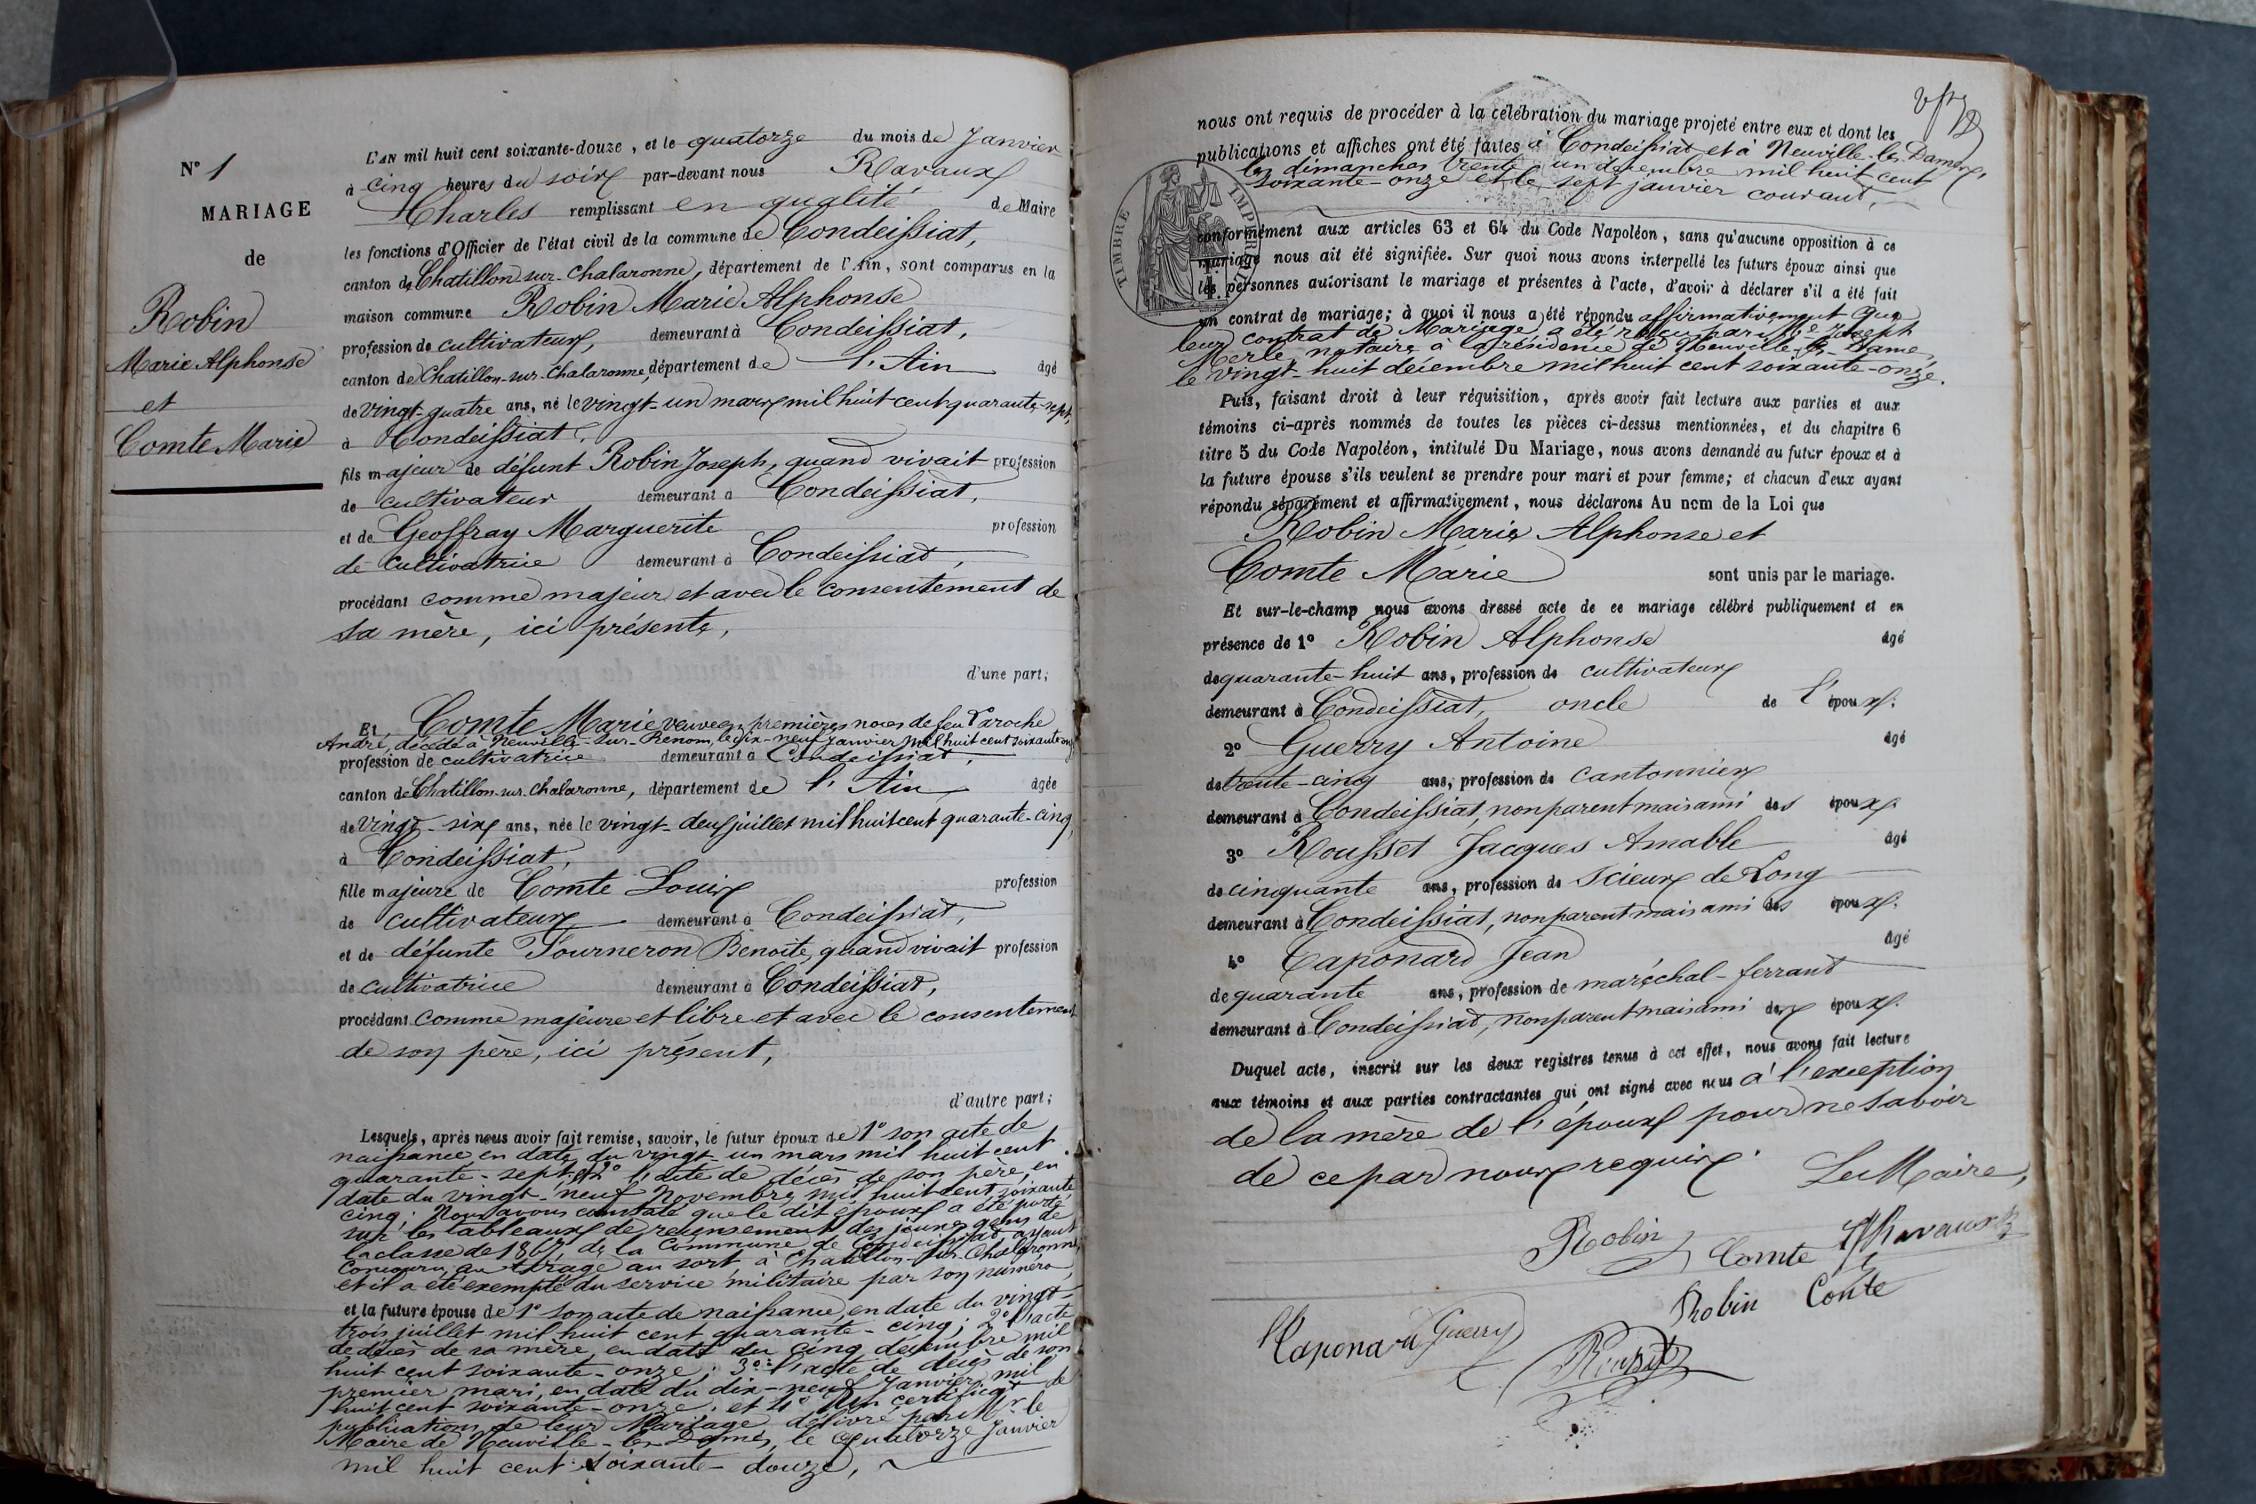 N° 1
MARIAGE
de
Robin
Marie Alphonse
et
Comte Marie
L'AN mil huit cent soixante-douze, et le quatorze du mois de Janvier
à cinq heures du soir par-devant nous Ravaux
Charles remplissant en qualité de Maire
les fonctions d'Officier de l'état civil de la commune de Condeissiat,
canton de Chatillon-sur-Chalaronne, département de l'Ain, sont comparus en la
maison commune Robin Marie Alphonse
profession de cultivateur, demeurant à Condeissiat,
canton de Chatillon-sur-Chalaronne, département de l'Ain âgé
de vingt-quatre ans, né le vingt-un mars mil huit cent quarante-sept,
à Condeissiat,
fils majeur de défunt Robin Joseph, quand vivait profession
de cultivateur demeurant à Condeissiat,
et de Geoffray Marguerite profession
de cultivatrice demeurant à Condeissiat,
procédant comme majeur et avec le consentement de
sa mère, ici présente,
d'une part;
Et Comte Marie veuve en premières noces de feu Laroche
André, décédé à Neuville-sur-Renom, le dix-neuf janvier mil huit cent soixante onze
profession de cultivatrice demeurant à Condeissiat,
canton de Chatillon-sur-Chalaronne, département de l'Ain âgée
de vingt-six ans, née le vingt-deux juillet mil huit cent quarante-cinq,
à Condeissiat,
fille majeure de Comte Louis profession
de cultivateur demeurant à Condeissiat,
et de défunte Fourneron Benoite, quand vivait profession
de cultivatrice demeurant à Condeissiat,
procédant comme majeure et libre et avec le consentement
de son père, ici présent,
d'autre part;
Lesquels, après nous avoir fait remise, savoir, le futur époux de 1° son acte de
naissance en date du vingt-un mars mil huit cent
quarante-sept et 2° l'acte de décès de son père, en
date du vingt-neuf Novembre mil huit cent soixante
cinq; Nous avons constaté que le dit époux a été porté
sur les tableaux de recensement des jeunes gens de
la classe de 1867, de la Commune de Condeissiat ayant
concouru au tirage au sort à Chatillon-sur-Chalaronne,
et il a été exempté du service militaire par son numéro,
et la future épouse de 1° son acte de naissance, en date du vingt-
trois juillet mil huit cent quarante-cinq; 2° l'acte
de décès de sa mère, en date du cinq décembre mil
huit cent soixante-onze; 3° l'acte de décès de son
premier mari, en date du dix-neuf Janvier mil
huit cent soixante-onze; et 4° Un certificat de
publication de leur Mariage délivré par Mr. le
Maire de Neuville-les-Dames, le quatorze Janvier
mil huit cent soixante-douze,
nous ont requis de procéder à la célébration du mariage projeté entre eux et dont les
publications et affiches ont été faites à Condeissiat et à Neuville-les-Dames,
les dimanches trente-un décembre mil huit cent
soixante-onze et le sept janvier courant,
TIMBRE IMPERIAL
conformément aux articles 63 et 64 du Code Napoléon, sans qu'aucune opposition à ce
mariage nous ait été signifiée. Sur quoi nous avons interpellé les futurs époux ainsi que
les personnes autorisant le mariage et présentes à l'acte, d'avoir à déclarer s'il a été fait
un contrat de mariage; à quoi il nous a été répondu affirmativement que
leur contrat de Mariage a été reçu par Me Joseph
Merle, notaire à la résidence de Neuville-les-Dames,
le vingt-huit décembre mil huit cent soixante-onze.
Puis, faisant droit à leur réquisition, après avoir fait lecture aux parties et aux
témoins ci-après nommés de toutes les pièces ci-dessus mentionnées, et du chapitre 6
titre 5 du Code Napoléon, intitulé Du Mariage, nous avons demandé au futur époux et à
la future épouse s'ils veulent se prendre pour mari et pour femme; et chacun d'eux ayant
répondu séparément et affirmativement, nous déclarons Au nom de la Loi que
Robin Marie Alphonse et
Comte Marie sont unis par le mariage.
Et sur-le-champ nous avons dressé acte de ce mariage célébré publiquement et en
présence de 1° Robin Alphonse âgé
de quarante-huit ans, profession de cultivateur
demeurant à Condeissiat, oncle de l'époux.
2° Guerry Antoine âgé
de trente-cinq ans, profession de cantonnier
demeurant à Condeissiat, non parent mais ami des époux.
3° Rousset Jacques Amable âgé
de cinquante ans, profession de scieur de Long
demeurant à Condeissiat, non parent mais ami des époux.
4° Caponard Jean âgé
de quarante ans, profession de maréchal-ferrant
demeurant à Condeissiat, non parent mais ami des époux.
Duquel acte, inscrit sur les deux registres tenus à cet effet, nous avons fait lecture
aux témoins et aux parties contractantes qui ont signé avec nous à l'exception
de la mère de l'époux pour ne savoir
de ce par nous requis.
Le Maire,
Robin Comte Ravaux
Robin Comte
Caponard Guerry
Rousset